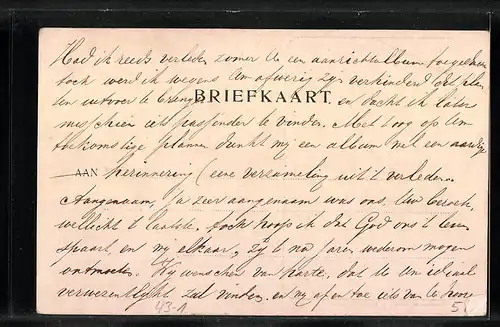 Had ik reeds verleden zomer U een aanzichtalbum toegedacht
toch werd ik wegens Uw afwezig zijn verhinderd dat plan
ten uitvoer te brengen en dacht ik later
BRIEFKAART.
misschien iets passender te vinden. Met oog op Uw
toekomstige plannen dunkt mij een album wel een aardige
AAN herinnering (eene verzameling uit 't verleden
Aangenaam, ja zeer aangenaam was ons Uw bezoek,
wellicht 't laatste, toch hoop ik dat God ons 't leven
spaart en wij elkaar, zij 't na jaren wederom mogen
ontmoeten. Wij wenschen van harte, dat U Uw ideaal
verwezenlijkt zal vinden, en wij af en toe iets van U hooren
43-1 5